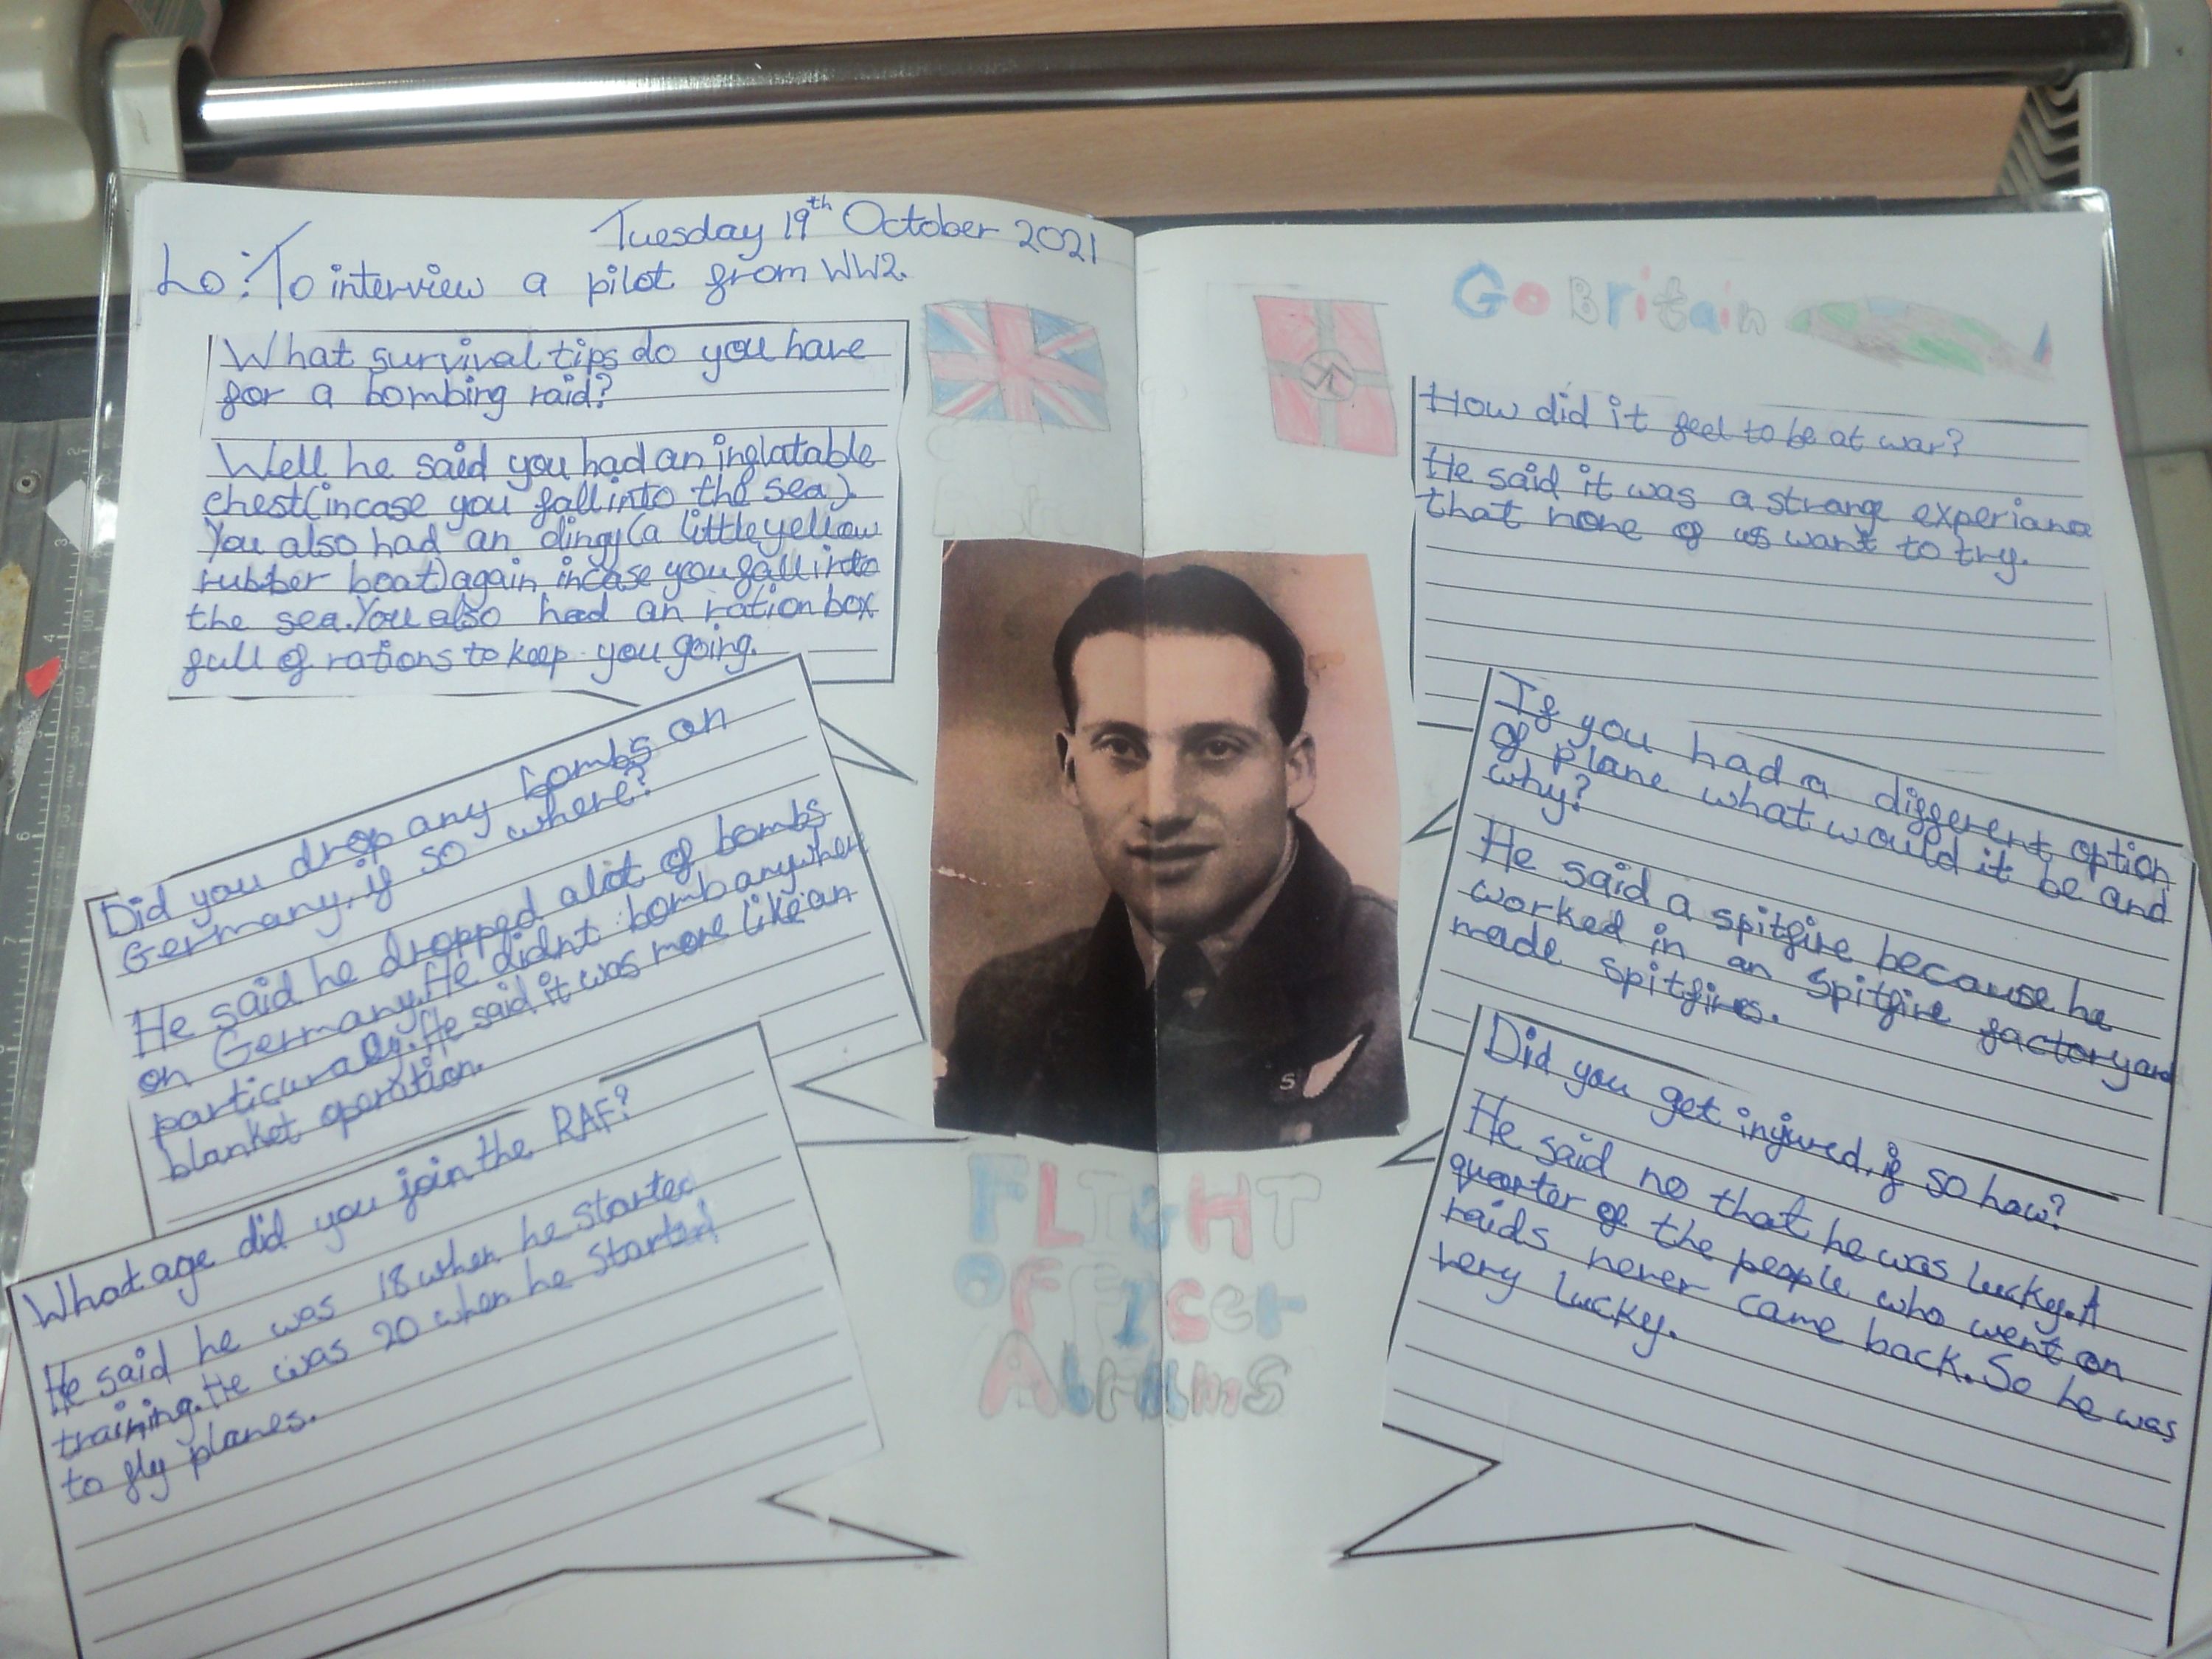 Tuesday 19th October 2021
Lo: To interview a pilot from WW2.
What survival tips do you have
for a bombing raid?
Well he said you had an inflatable
chest(incase you fall into the sea).
You also had an dingy(a little yellow
rubber boat)again incase you fall into
the sea. You also had an ration box
full of rations to keep you going.
Did you drop any bombs on
Germany, if so where?
He said he dropped alot of bombs
on Germany. He didnt bomb anywher
particurally. He said it was more like an
blanket operation.
What age did you join the RAF?
He said he was 18 when he started
training. He was 20 when he started
to fly planes.
FLIGHT
OFFICER
Go Britain
How did it feel to be at war?
He said it was a strange experiance
that none of us want to try.
If you had a different option
of plane what would it be and
why?
He said a spitfire because he
worked in an spitfire factory and
made spitfires.
S
Did you get injured, if so how?
He said no that he was lucky. A
quarter of the people who went on
raids never came back. So he was
very lucky.